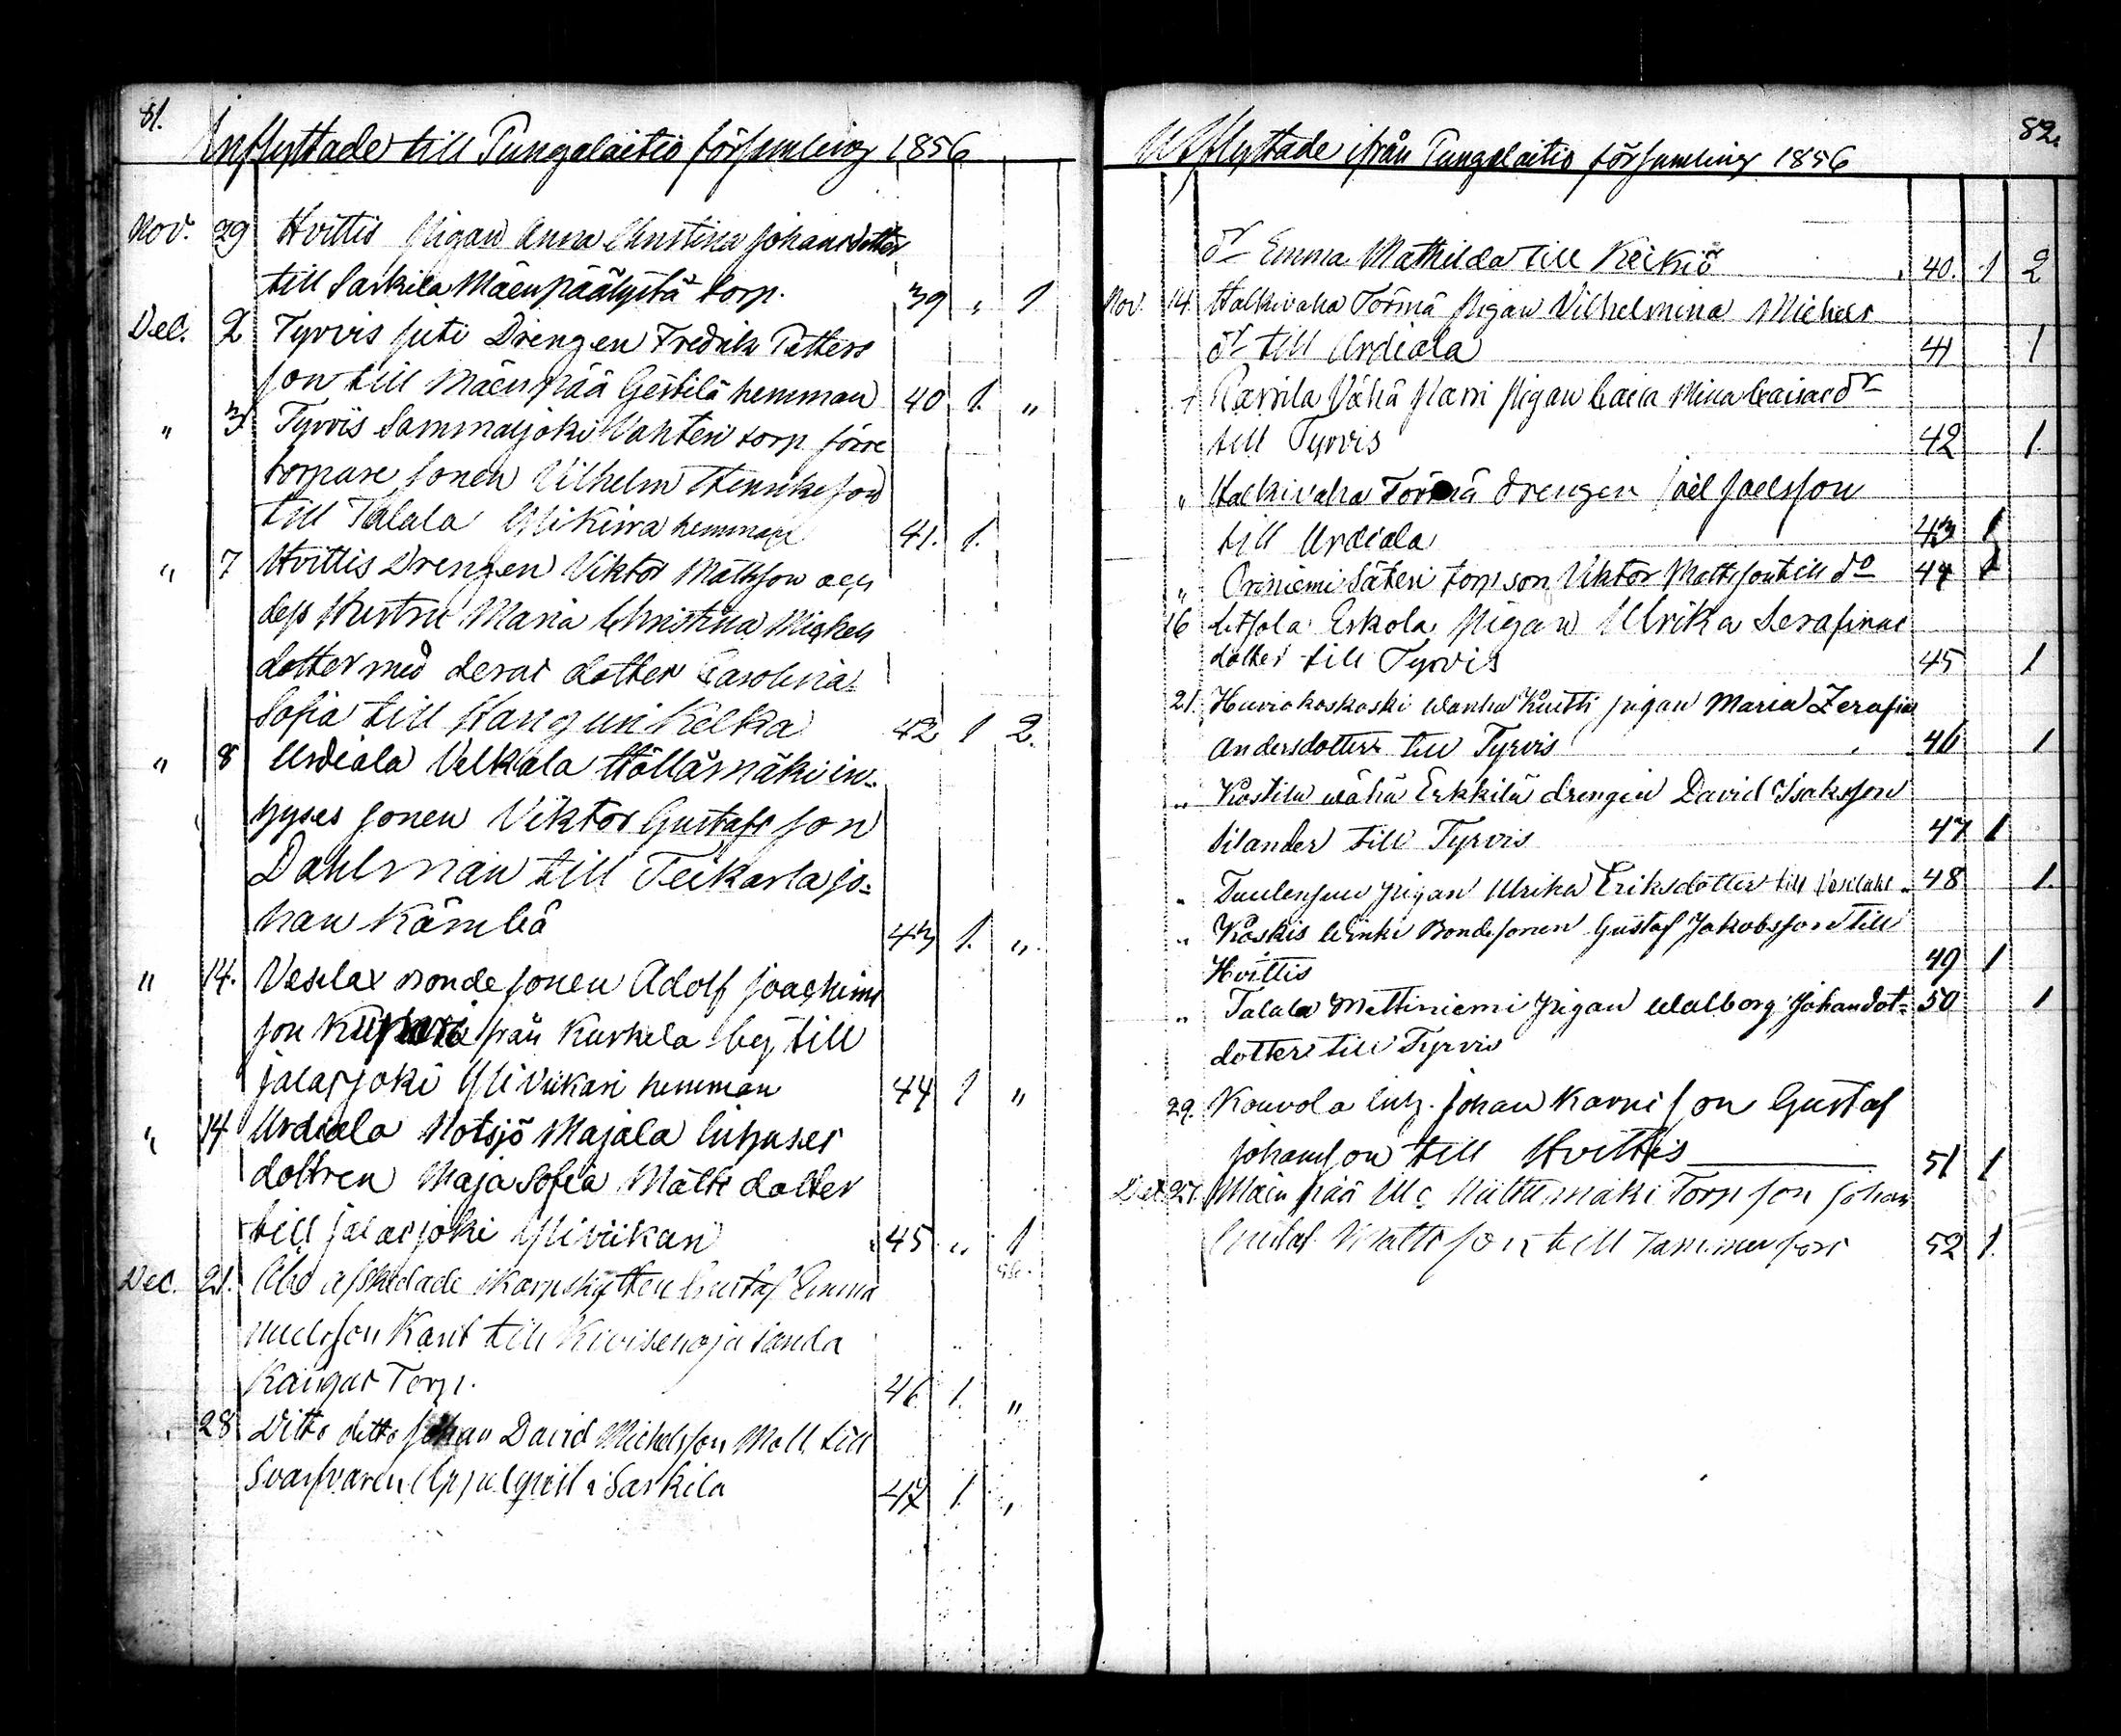 81.
Inflyttade till Pungalaitio församling 1856
Nov. 29 Hvittis Pigan Anna Christina Johansdotter
till Sarkila Mäenpäälystä torp. 39 " 1
Dec. 2 Tyrvis Drengen Fredrik Petters
son till Mäenpää Gestilä hemman 40 1. "
" 3 Tyrvis Sammaljoki Vahteri torp förre
torpare sonen Vilhelm Henriksson
till Talala hemman 41. 1.
" 7 Hvittis Drengen Viktor Mattsson och
dess Hustru Maria Christina Michels
dotter med deras dotter Carolina
Sofia till Kelka 42 1 2.
" 8 Urdiala Velkala Höllämäki in-
hyses sonen Viktor Gustafs son
Dahlman till Teikarla jo-
han Kämbä 43 1. "
" 14. Vesilax Bonde sonen Adolf Joachims
son från Kurkela by till
Jalasjoki Yli Viikari hemman 44 1 "
" 14 Urdiala Notsjö Majala inhyses
dottren Maja Sofia Matts dotter
till Jalasjoki Yliviikari 45 " 1
Dec. 21. Åbo afskedade skarpskytten Gustaf Emma
nuelsson Karit till Kivisenoja Sanda
Kangas Torp. 46 1. "
28 Ditto ditto Johan David Michelsson Moll till
Svarfvaren i Sarkila 47 1. "
82.
Utflyttade ifrån Pungalaitio församling 1856
dr Emma Mathilda till Keikiö 40. 1 2
Nov. 14. Halkivaha Törmä Pigan Vilhelmina Michels
dr till Urdiala 41 1
" Karrila Vähä Pigan Mina dr
till Tyrvis 42 1.
" Halkivaha Törmä drengen Joel Joelsson
till Urdiala 43 1
" Oriniemi Säteri torp son Viktor Mattsson till do 44 1
16 Eskola Pigan Ulrika Serafina
dotter till Tyrvis 45 1
21. Kuitti pigan Maria Zerafia
Andersdotter till Tyrvis 46 1
" Kostila wähä Erkkilä drengen David Isaksson
Silander till Tyrvis 47 1
" pigan Ulrika Eriksdotter till 48 1.
" Koskis Bondesonen Gustaf Jakobsson till
Hvittis 49 1
" Talala Mattiniemi Pigan Walborg Johandot- 50 1
dotter till Tyrvis
29. Kouvola inh. Johan son Gustaf
Johansson till Hvittis 51 1
Dec 27. Mäenpää Niittumäki Torp son Johan
Gustaf Mattsson till Tammerfors 52 1.